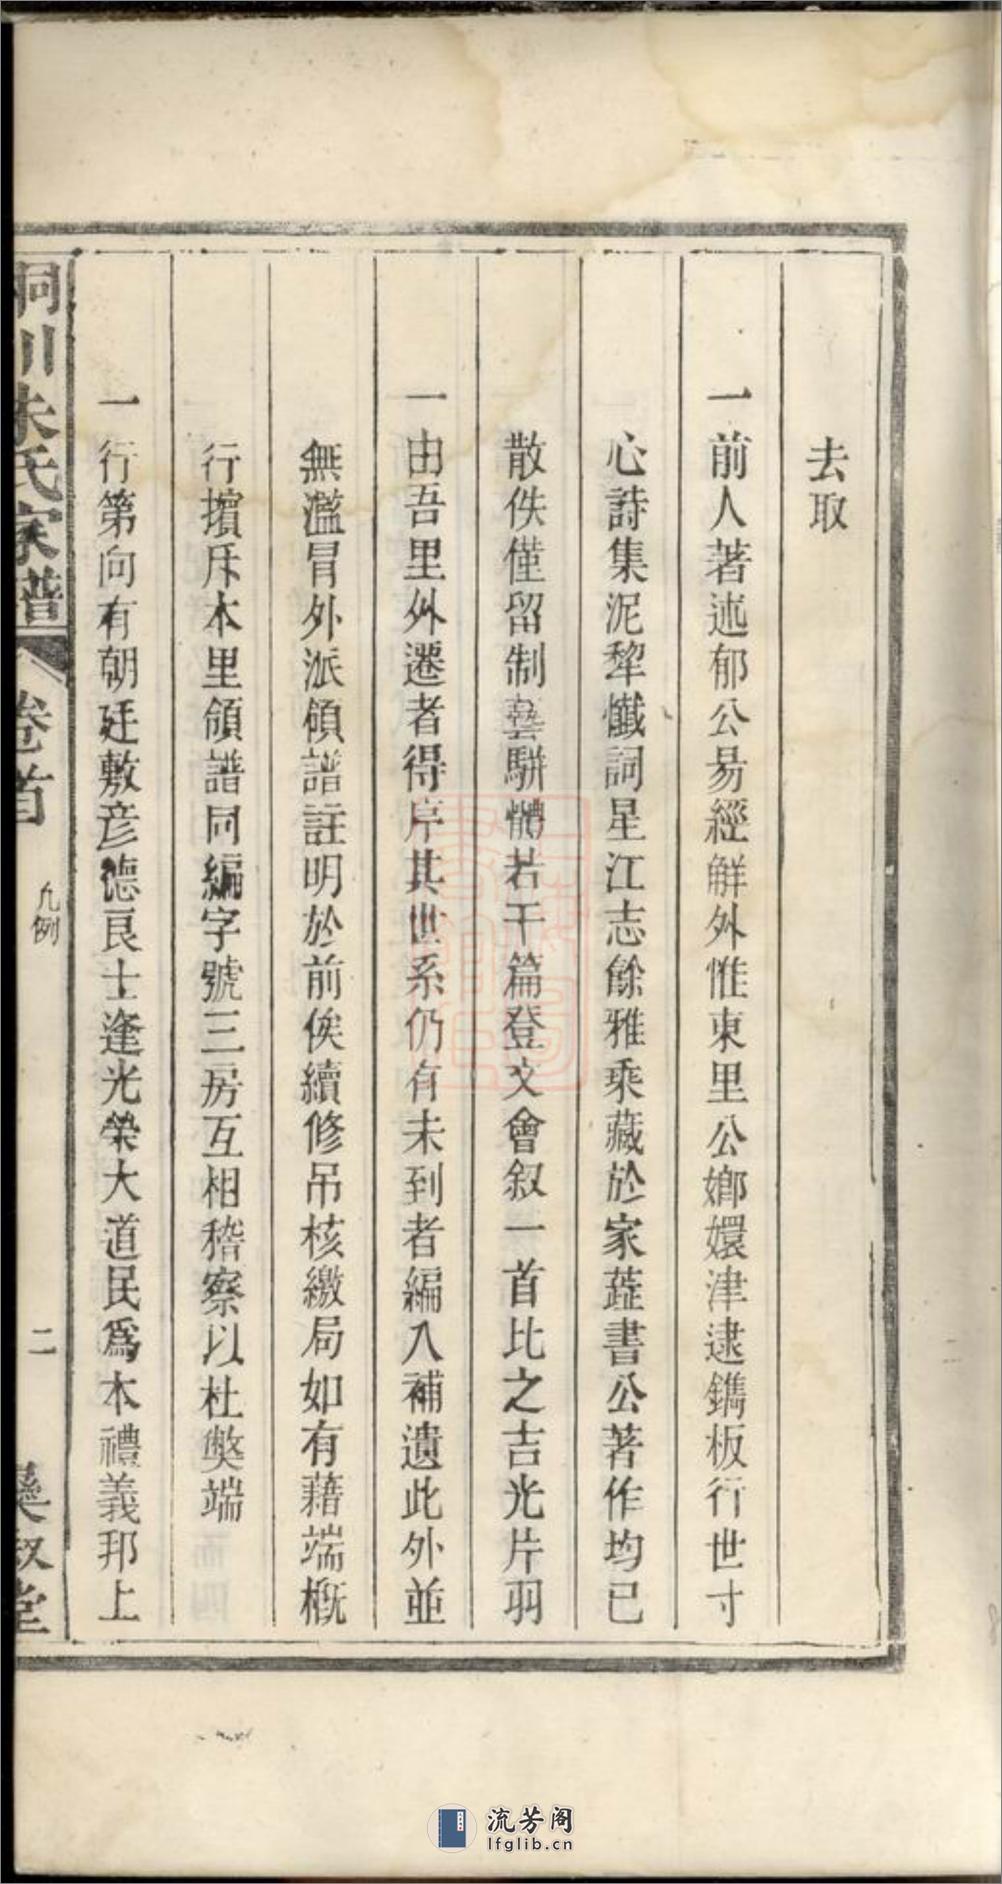 去取
一前人著述郁公易經解外惟東里公嫏嬛津逮鐫板行世寸
心詩集泥犂懺詞星江志餘雅乘藏於家蓰書公著作均已
散佚僅留制藝駢體若干篇登文會叙一首比之吉光片羽
一由吾里外遷者得序其世系仍有未到者編入補遺此外並
無濫冒外派領譜註明於前俟續修吊核繳局如有藉端概
行擯斥本里領譜同編字號三房互相稽察以杜獘端
一行第向有朝廷敷彦德良士逢光榮大道民爲本禮義邦上
桐川朱氏家譜 卷首 凡例 二 叙堂
流芳阁
lfglib.cn